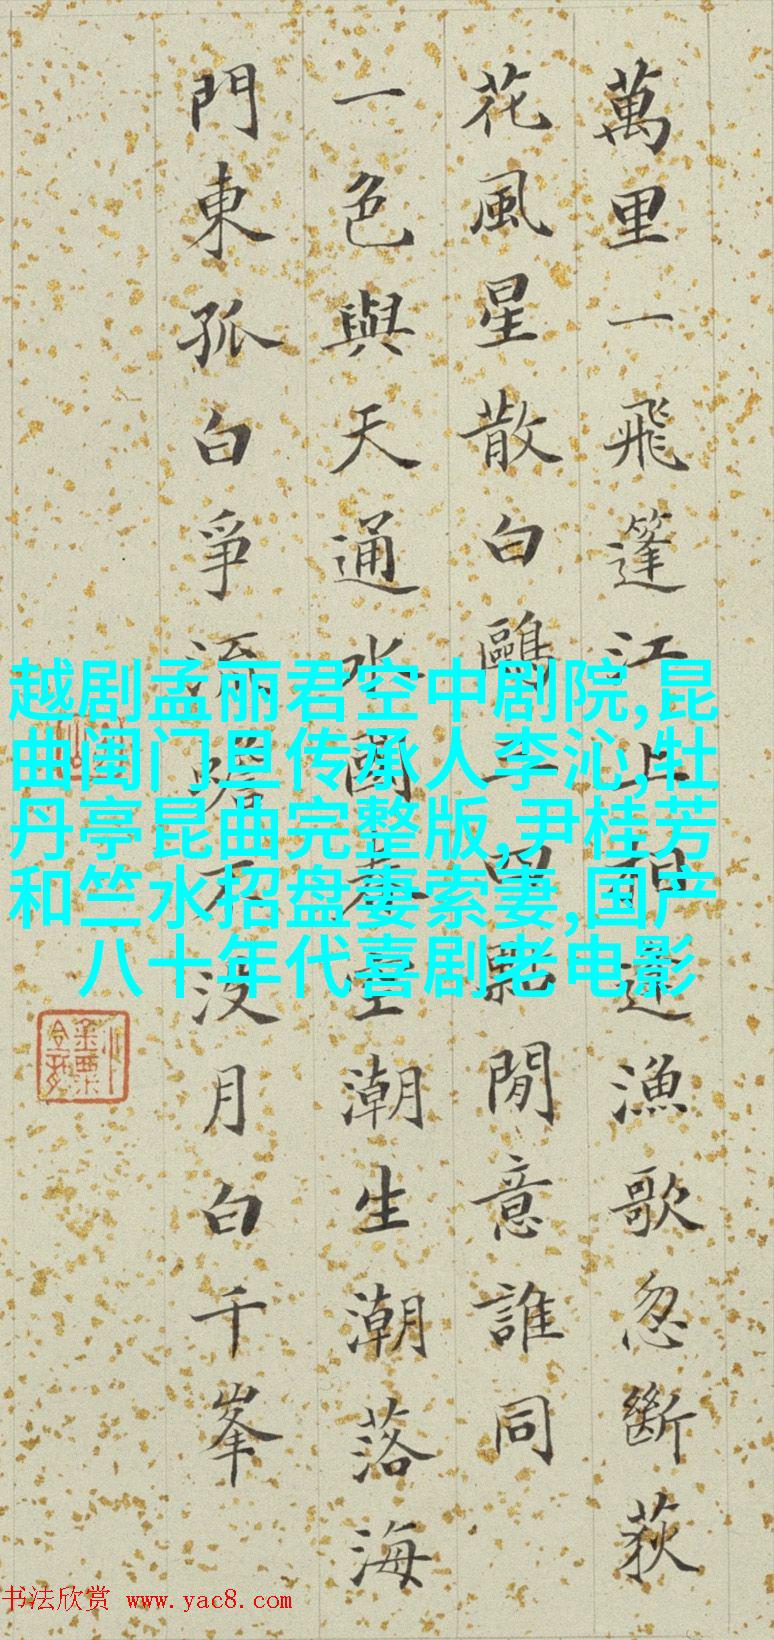 萬里一飛篷江上相逢漁歌忽斷荻
花風星散白鷗三四點閒意誰同
一色與天通水國春空潮生潮落海
門東孤白爭流蟾不沒月白千峯
越剧孟丽君空中剧院,昆
曲闺门旦传承人李沁,牡
丹亭昆曲完整版,尹桂芳
和竺水招盘妻索妻,国产
八十年代喜剧老电影
书法欣赏 www.yac8.com